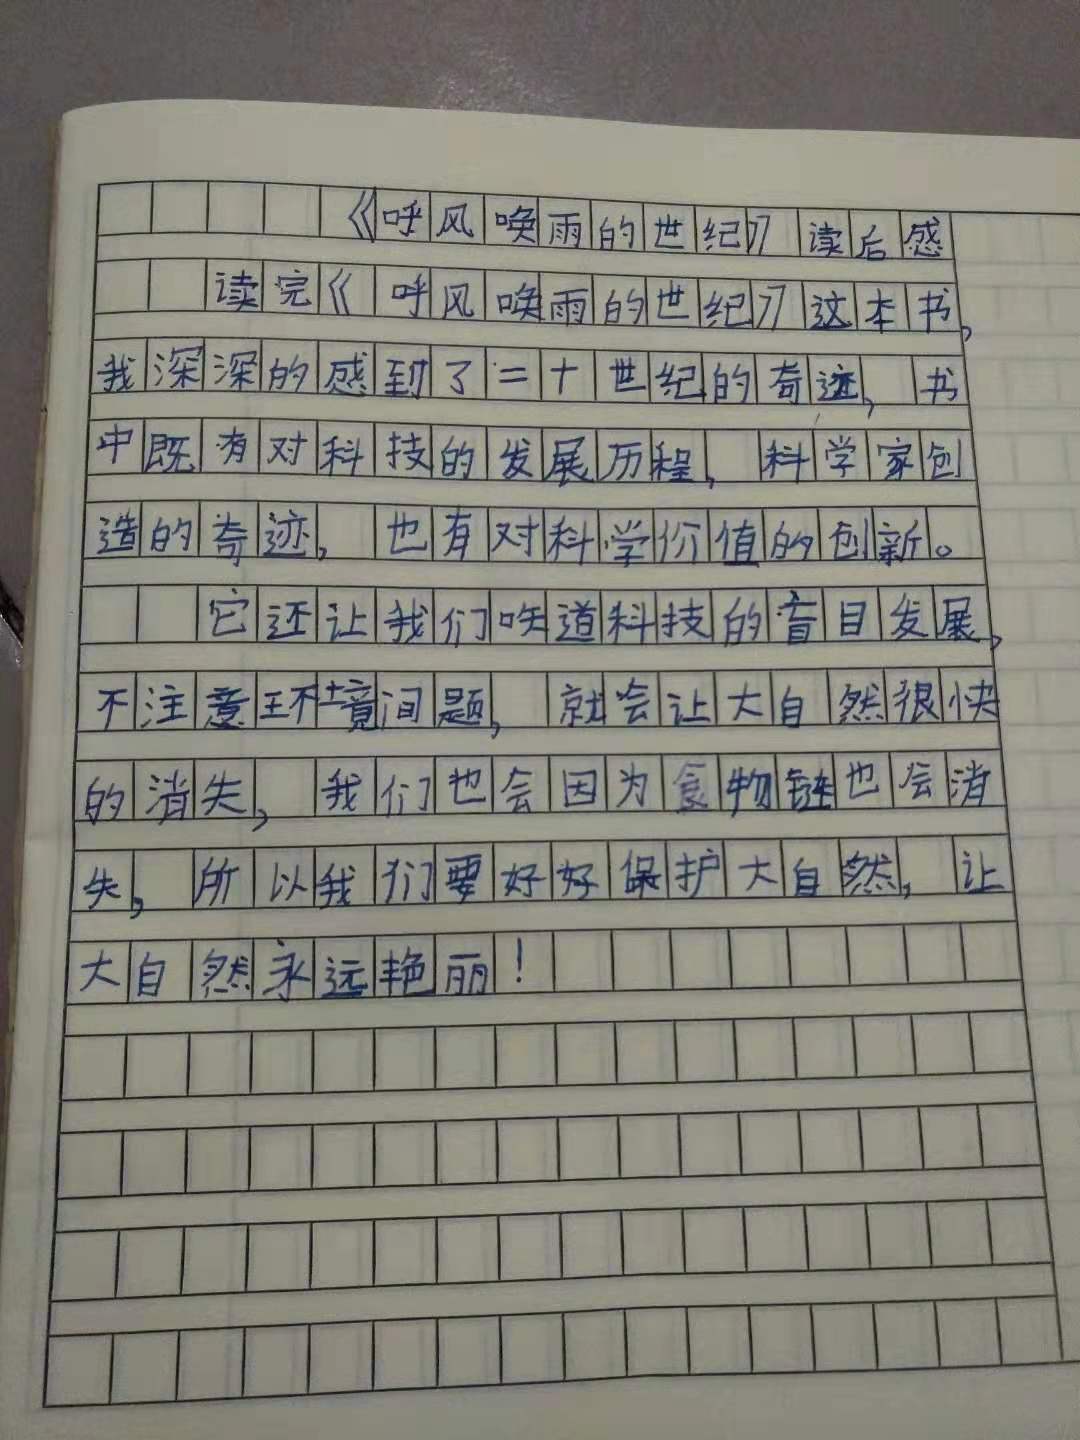 《呼风唤雨的世纪》读后感
读完《呼风唤雨的世纪》这本书,
我深深的感到了二十世纪的奇迹,书
中既有对科技的发展历程,科学家创
造的奇迹,也有对科学价值的创新。
它还让我们知道科技的盲目发展,
不注意环境问题,就会让大自然很快
的消失,我们也会因为食物链也会消
失,所以我们要好好保护大自然,让
大自然永远艳丽!